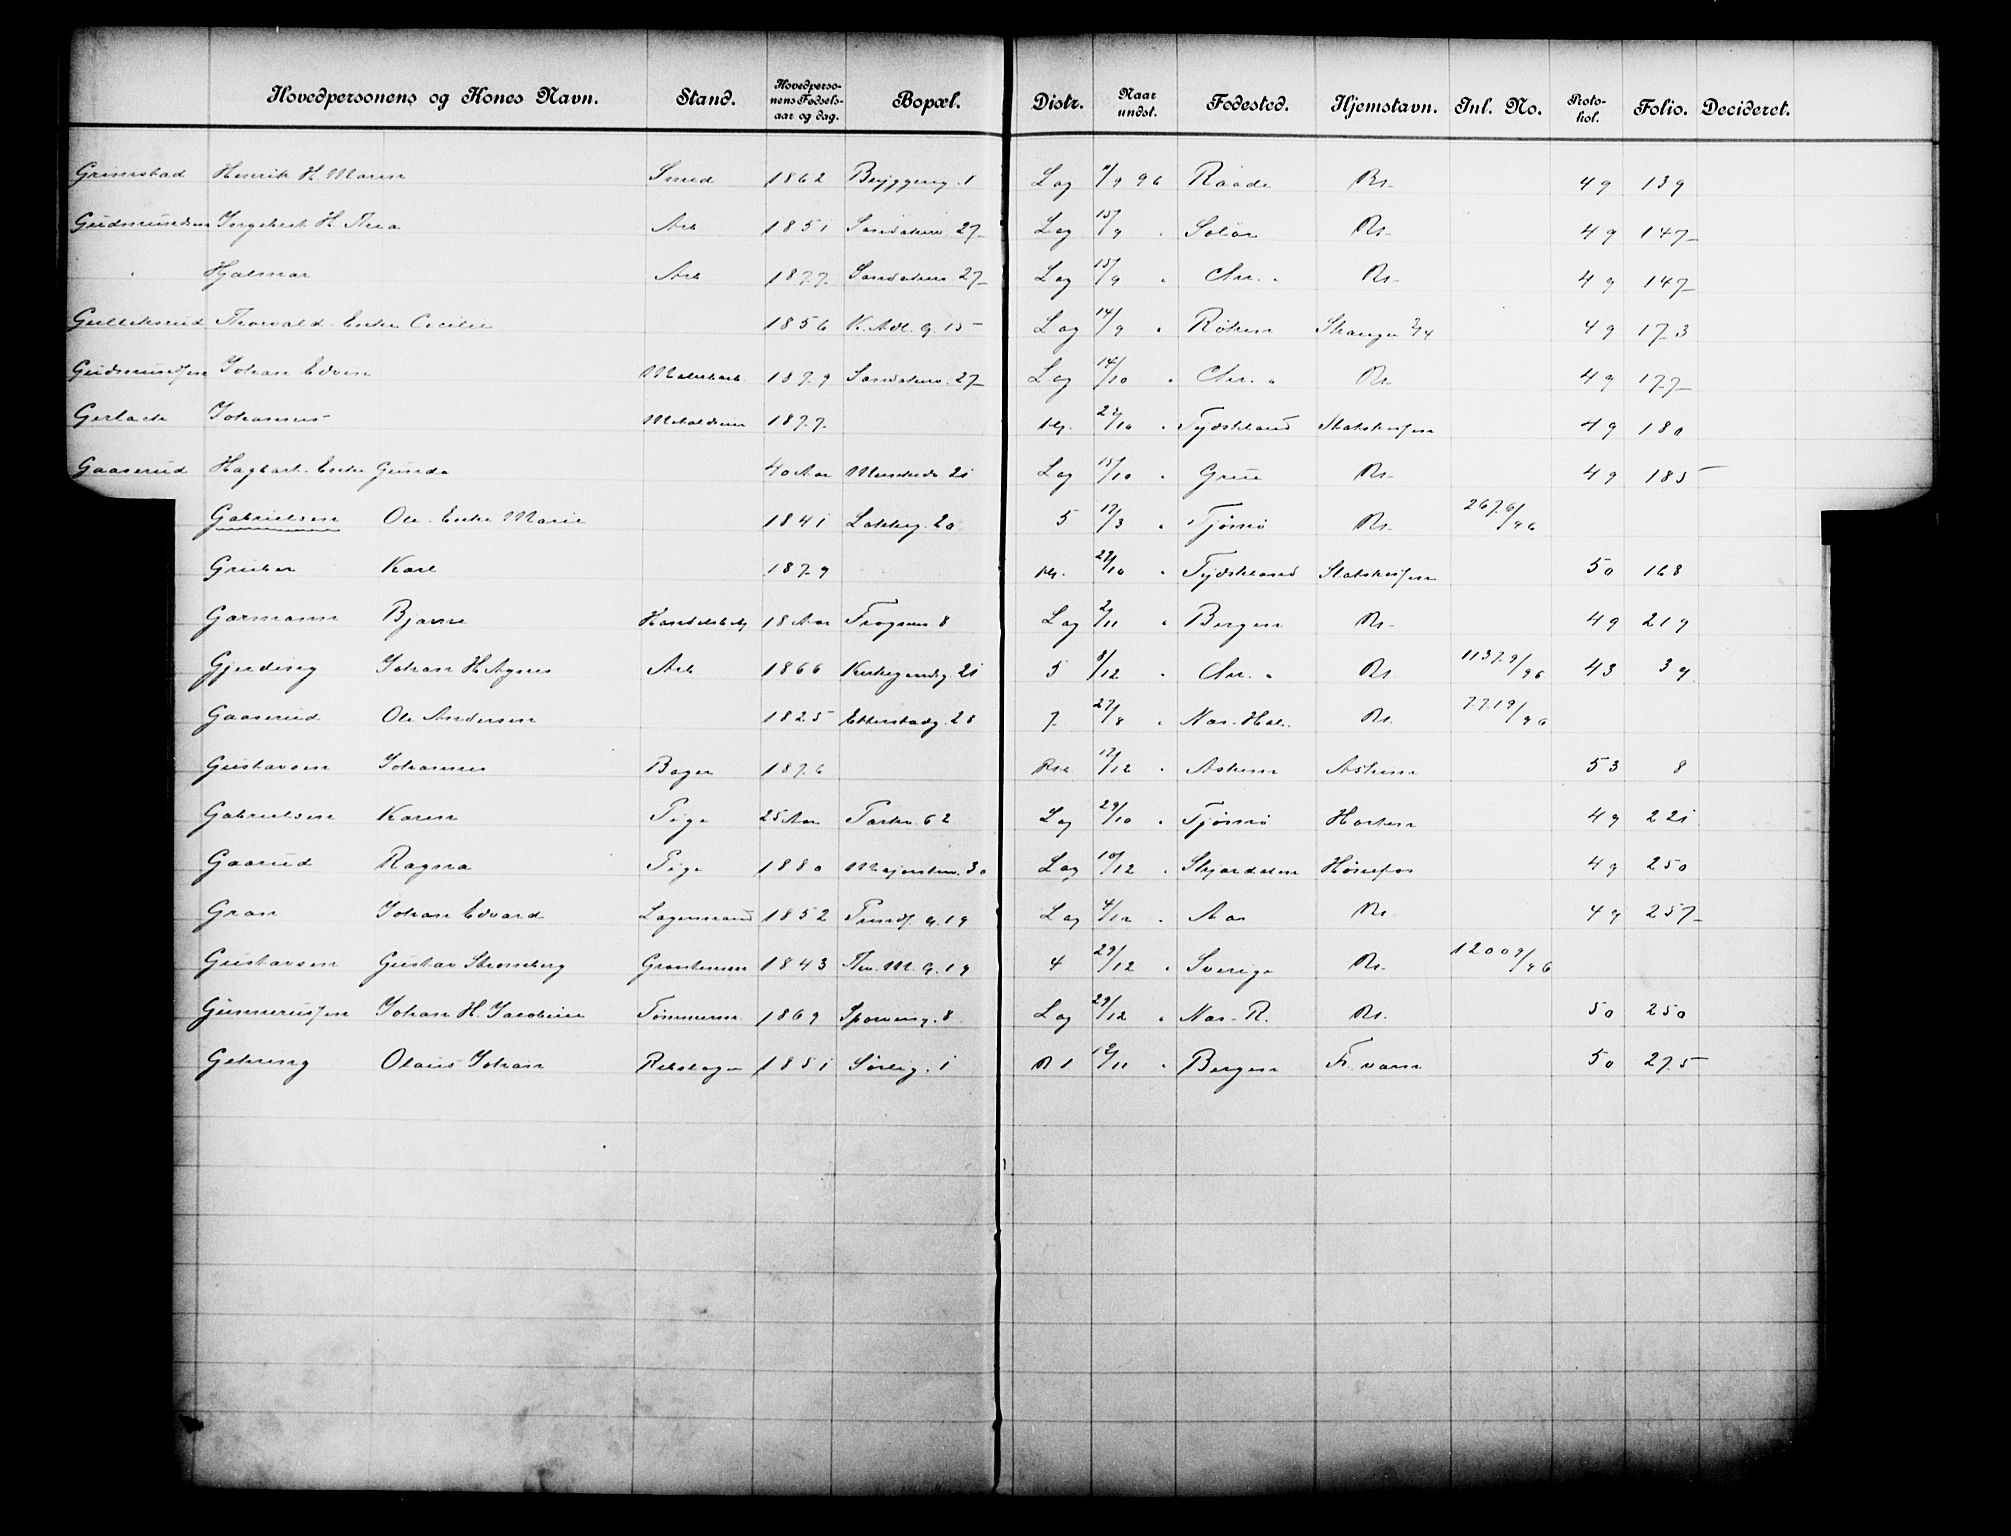 Hovedpersonens og Kones Navn. Stand. Hovedpersonens Fødselsaar og dag. Bopæl. Distr. Naar undst. Fødested. Hjemstavn. Inl. No. Protokol. Folio. Decideret.
Grimstad Henrik H. Maren Smed 1862 Bryggerg. 1 Lag 9 96 Raade Kr. 49 139
Gudmundsen Ingebret H. Thea Arb 1851 Sandakerv. 27 Lag 15/9 Solør Kr. 49 147
" Hjalmar Arb 1877 Sandakerv. 27 Lag 15/9 " Chr. a Kr. 49 147
Gulliksrud Thorvald Enke Cecilie 1856 K. Adl. g. 15 Lag 14/9 " Røken 49 173
Gudmundsen Johan Edvin Malerarb. 1879 Sandakerv. 27 Lag 14/10 " Chr. a Kr. 49 177
Gerlach Johannes 1877 " Tydskland Statskassen 49 180
Gaaserud Hagbart Enke Gunda 40 Aar 21 Lag 15/10 " Grue Kr. 49 185
Gabrielsen Ole Enke Marie 1841 Lakkeg. 20 5 17/3 " Tjømø Kr. 2676/96
Gruber Karl 1879 " Tydskland Statskassen 50 168
Garmann Bjarne 18 Aar Frognerv 8 Lag 2/11 " Bergen Kr. 49 219
Gjerding Johan H. Agnes Arb 1866 Kirkegaardg. 21 5 8/12 " Chr. a Kr. 11379/96 43 39
Gaaserud Ole Andersen 1825 Etterstadg. 28 7 27/8 " Nær. Hak. Kr. 7719/96
Gustavsen Johannes Bager 1876 17/12 " Askim Askim 53 8
Gabrielsen Karen Pige 25 Aar Parkv. 62 Lag 29/10 " Tjømø Horten 49 221
Gaarud Ragna Pige 1880 Majorstuv. 30 Lag 10/12 " Hønefos 49 250
Gran Johan Edvard Lagermand 1852 19 Lag 4/12 " Aas Kr. 49 257
Gustavsen Gustav Stromberg 1843 Thv. M. g. 19 4 29/12 " Sverige Kr. 12009/96
Gunnerussen Johan H. Jacobine Tømmerm. 1869 8 Lag 29/12 " Næs. R. Kr. 50 250
Gehring Olaus Johan Rebslager 1851 Sørlig. 1 R 1 " Bergen Fr. værn 50 275